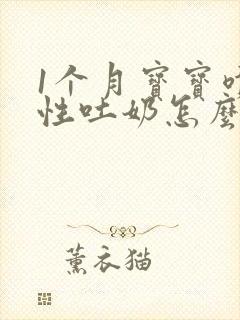 1个月寶寶
性吐奶怎麼
薰衣猫